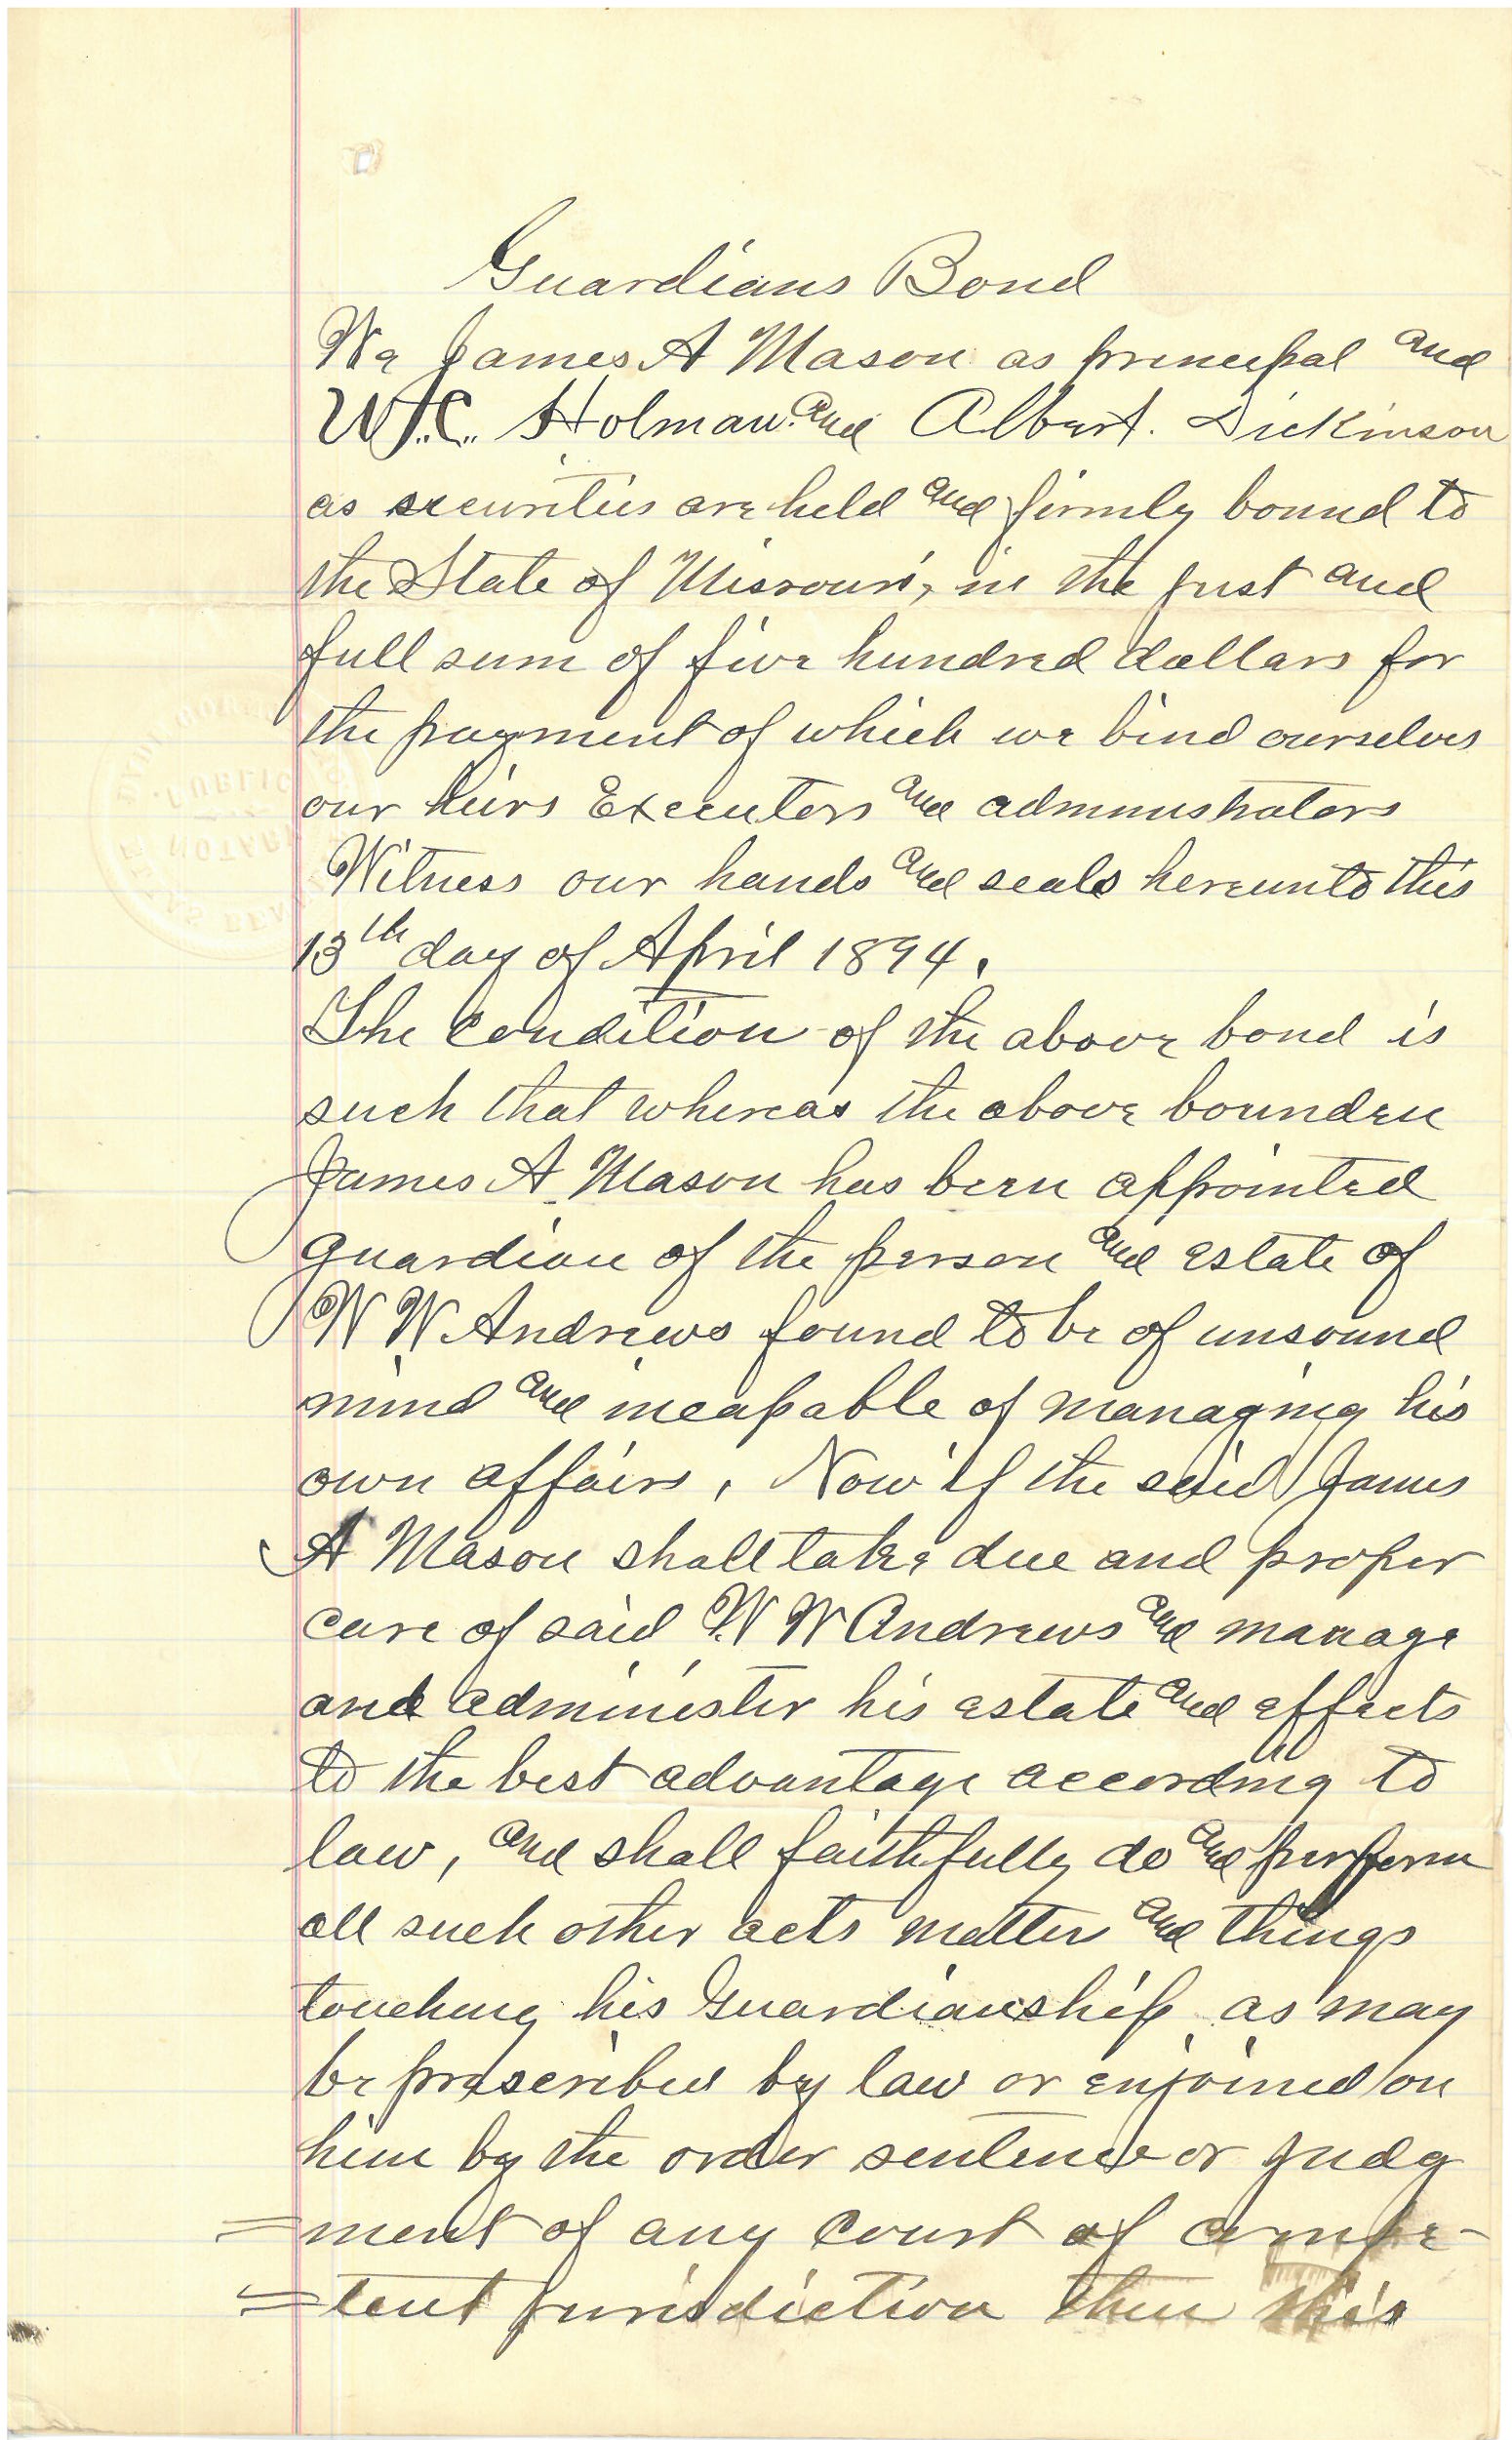 Guardians Bond
We James A Mason as principal and
W.C. Holman and Albert. Dickinson
as securities are held and firmly bound to
the State of Missouri, in the just and
full sum of five hundred dollars for
the payment of which we bind ourselves
our heirs Executors and administrators
Witness our hands and seals hereunto this
13th day of April 1894.
The condition of the above bond is
such that whereas the above bounden
James A. Mason has been appointed
guardian of the person and estate of
W W. Andrews found to be of unsound
mind and incapable of managing his
own affairs, Now if the said James
A Mason shall take due and proper
care of said W. W Andrews and manage
and administer his estate and effects
to the best advantage according to
law, and shall faithfully do and perform
all such other acts matter and things
touching his Guardianship as may
be prescribed by law or enjoined on
him by the order sentence or judg
=ment of any Court of compe-
=tent jurisdiction then this
PUBLIC
NOTAR